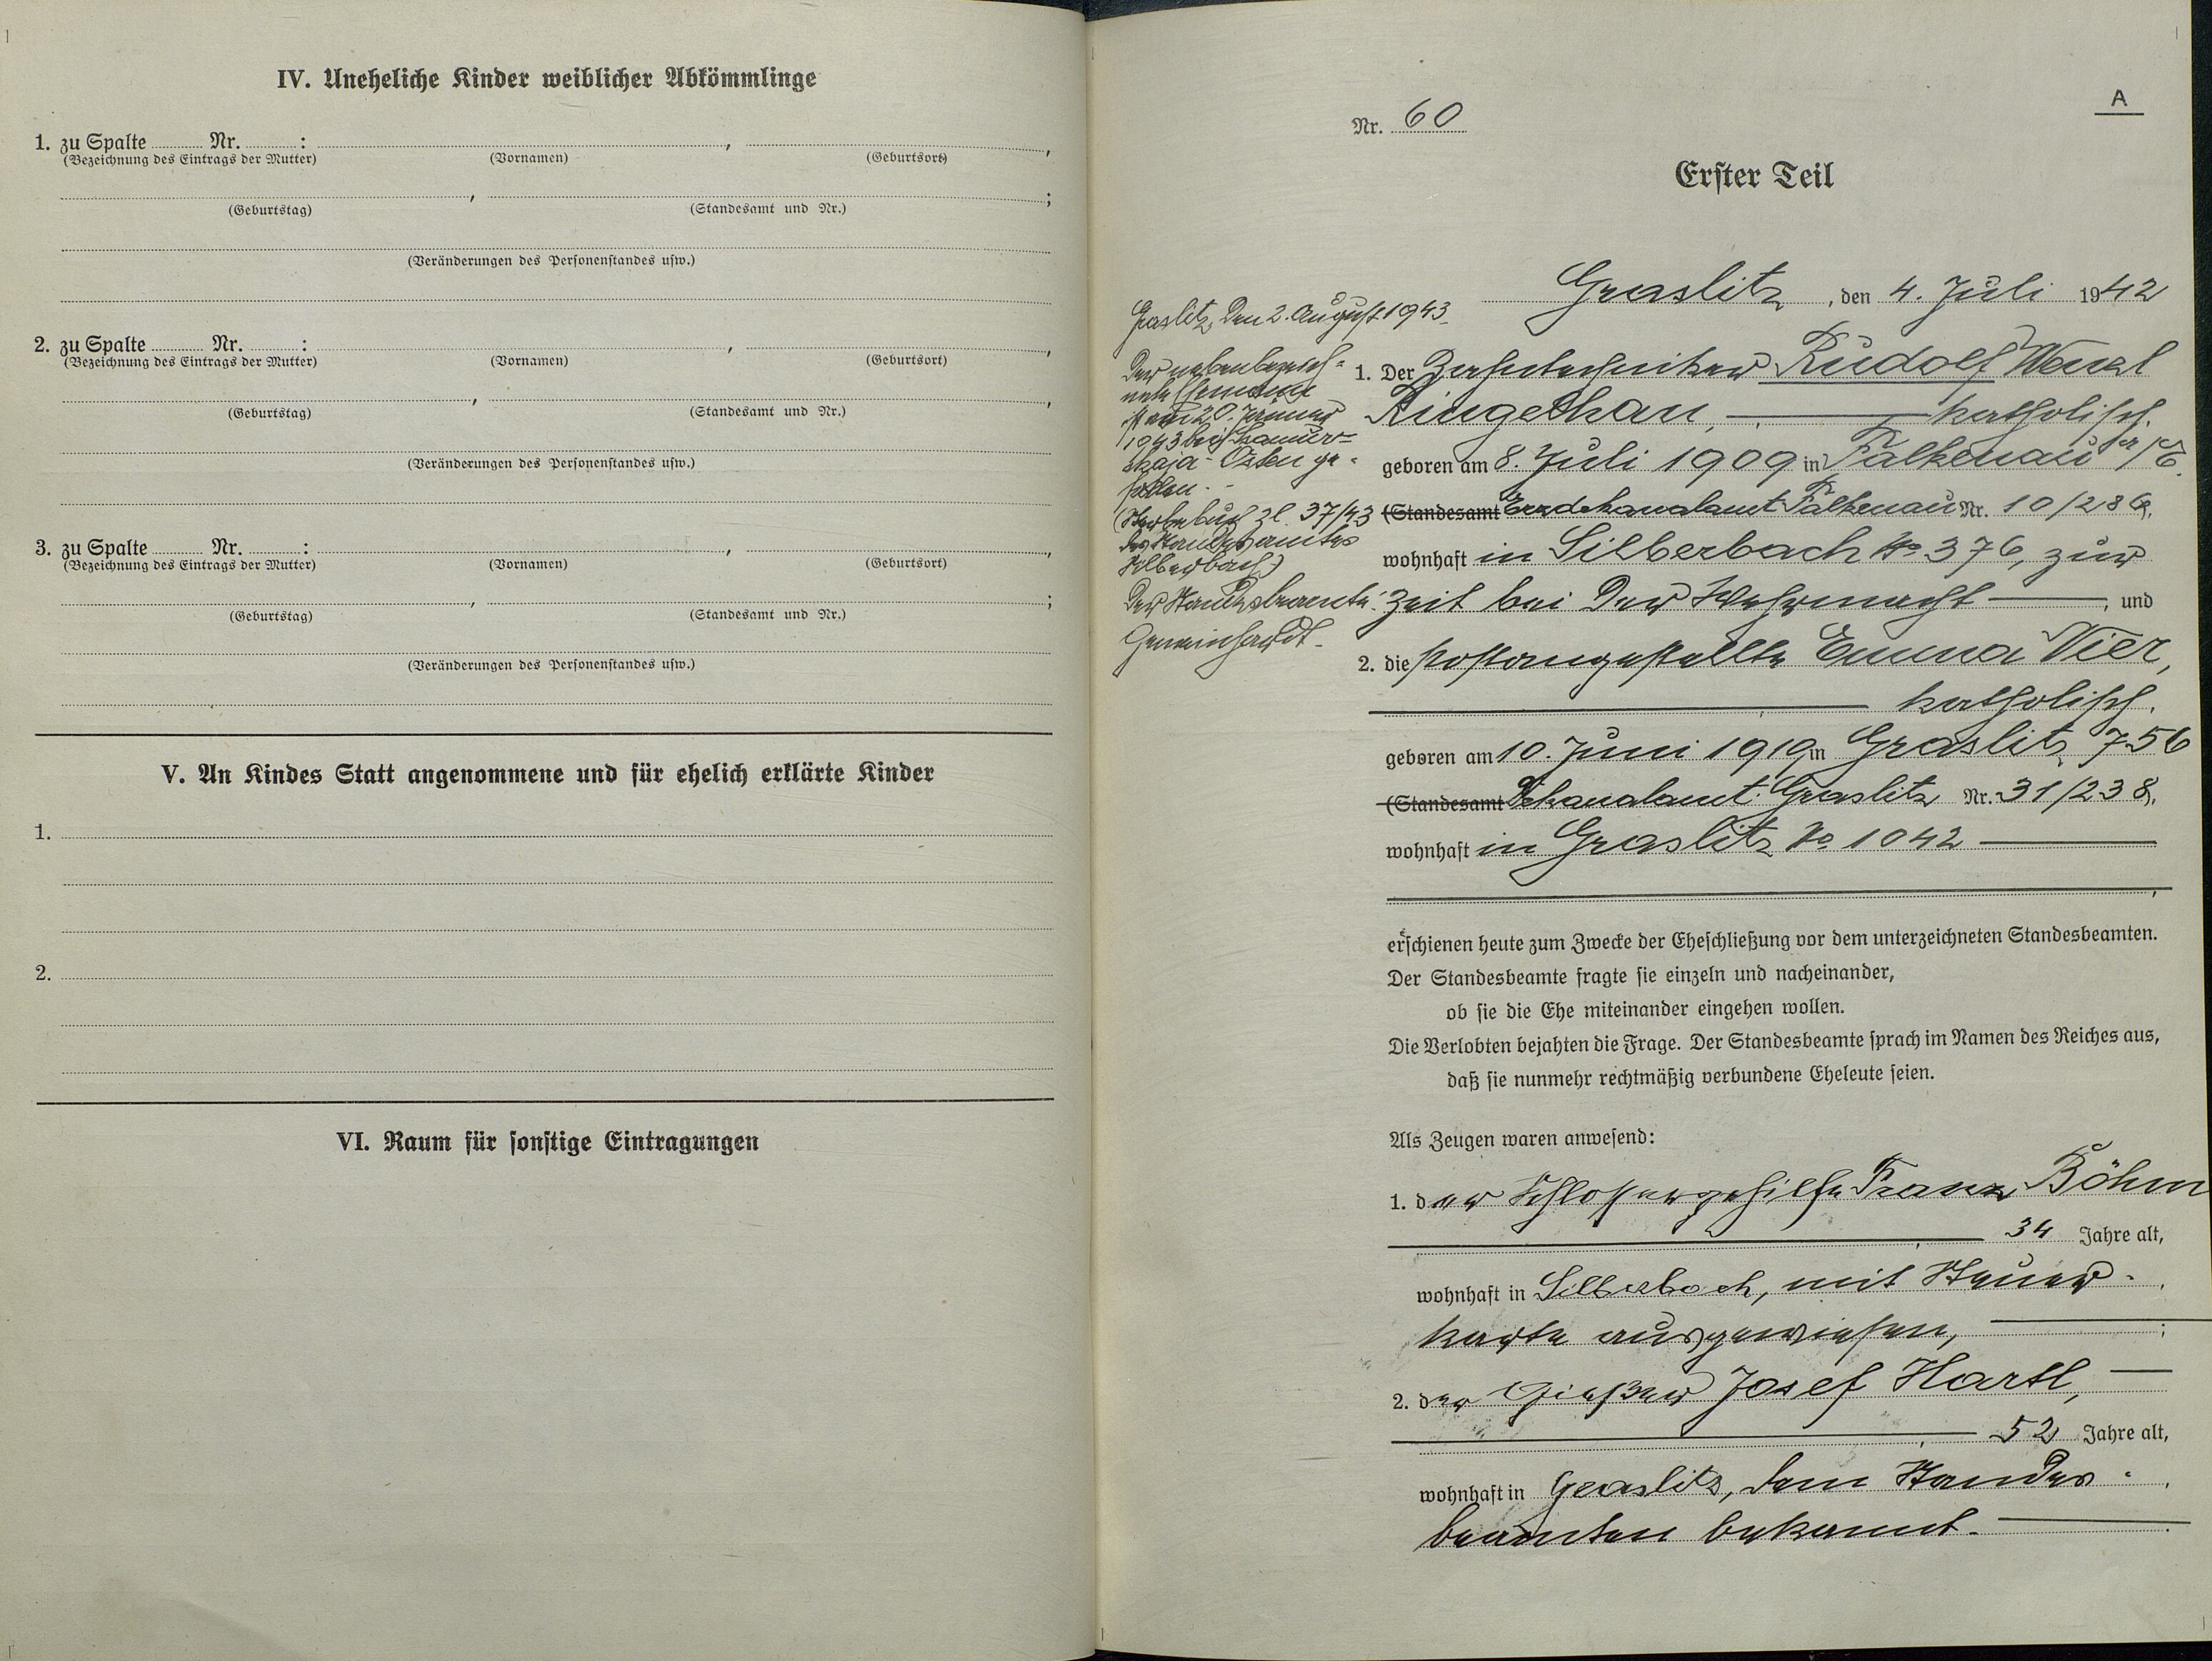 IV. Uneheliche Kinder weiblicher Abkömmlinge
1. zu Spalte Nr. : , ,
(Bezeichnung des Eintrags der Mutter) (Vornamen) (Geburtsort)
, ;
(Geburtstag) (Standesamt und Nr.)
(Veränderungen des Personenstandes usw.)
2. zu Spalte Nr. : , ,
(Bezeichnung des Eintrags der Mutter) (Vornamen) (Geburtsort)
, ,
(Geburtstag) (Standesamt und Nr.)
(Veränderungen des Personenstandes usw.)
3. zu Spalte Nr. : , ,
(Bezeichnung des Eintrags der Mutter) (Vornamen) (Geburtsort)
, ;
(Geburtstag) (Standesamt und Nr.)
(Veränderungen des Personenstandes usw.)
V. An Kindes Statt angenommene und für ehelich erklärte Kinder
1.
2.
VI. Raum für sonstige Eintragungen
A
Nr. 60
Erster Teil
Graslitz, den 4. Juli 1942
1. Der Zahntechniker Rudolf Wenzl
Ringelhan, — katholisch,
geboren am 8. Juli 1909 in Falkenau a/E.
(Standesamt Erzdekanalamt Falkenau Nr. 10/286),
wohnhaft in Silberbach No 376, zur
Zeit bei der Wehrmacht —, und
2. die Postangestellte Emma Vier,
— katholisch,
geboren am 10. Juni 1919 in Graslitz 756
(Standesamt Dekanalamt Graslitz Nr. 31/238),
wohnhaft in Graslitz No 1042 —
erschienen heute zum Zwecke der Eheschließung vor dem unterzeichneten Standesbeamten.
Der Standesbeamte fragte sie einzeln und nacheinander,
ob sie die Ehe miteinander eingehen wollen.
Die Verlobten bejahten die Frage. Der Standesbeamte sprach im Namen des Reiches aus,
daß sie nunmehr rechtmäßig verbundene Eheleute seien.
Als Zeugen waren anwesend:
1. der Schlossergehilfe Franz Böhm
— 34 Jahre alt,
wohnhaft in Silberbach, mit Steuer-
karte ausgewiesen, — ;
2. der Gießer Josef Hartl, —
— 52 Jahre alt,
wohnhaft in Graslitz, dem Standes-
beamten bekannt. —
Graslitz, den 2. August 1943
Der nebenbezeich-
nete Ehemann
ist am 20. Jänner
1943 bei
skaja - Osten ge-
fallen. -
(Sterbebuch Zl. 37/43
des Standesamtes
Silberbach)
Der Standesbeamte:
Gemeinhardt.